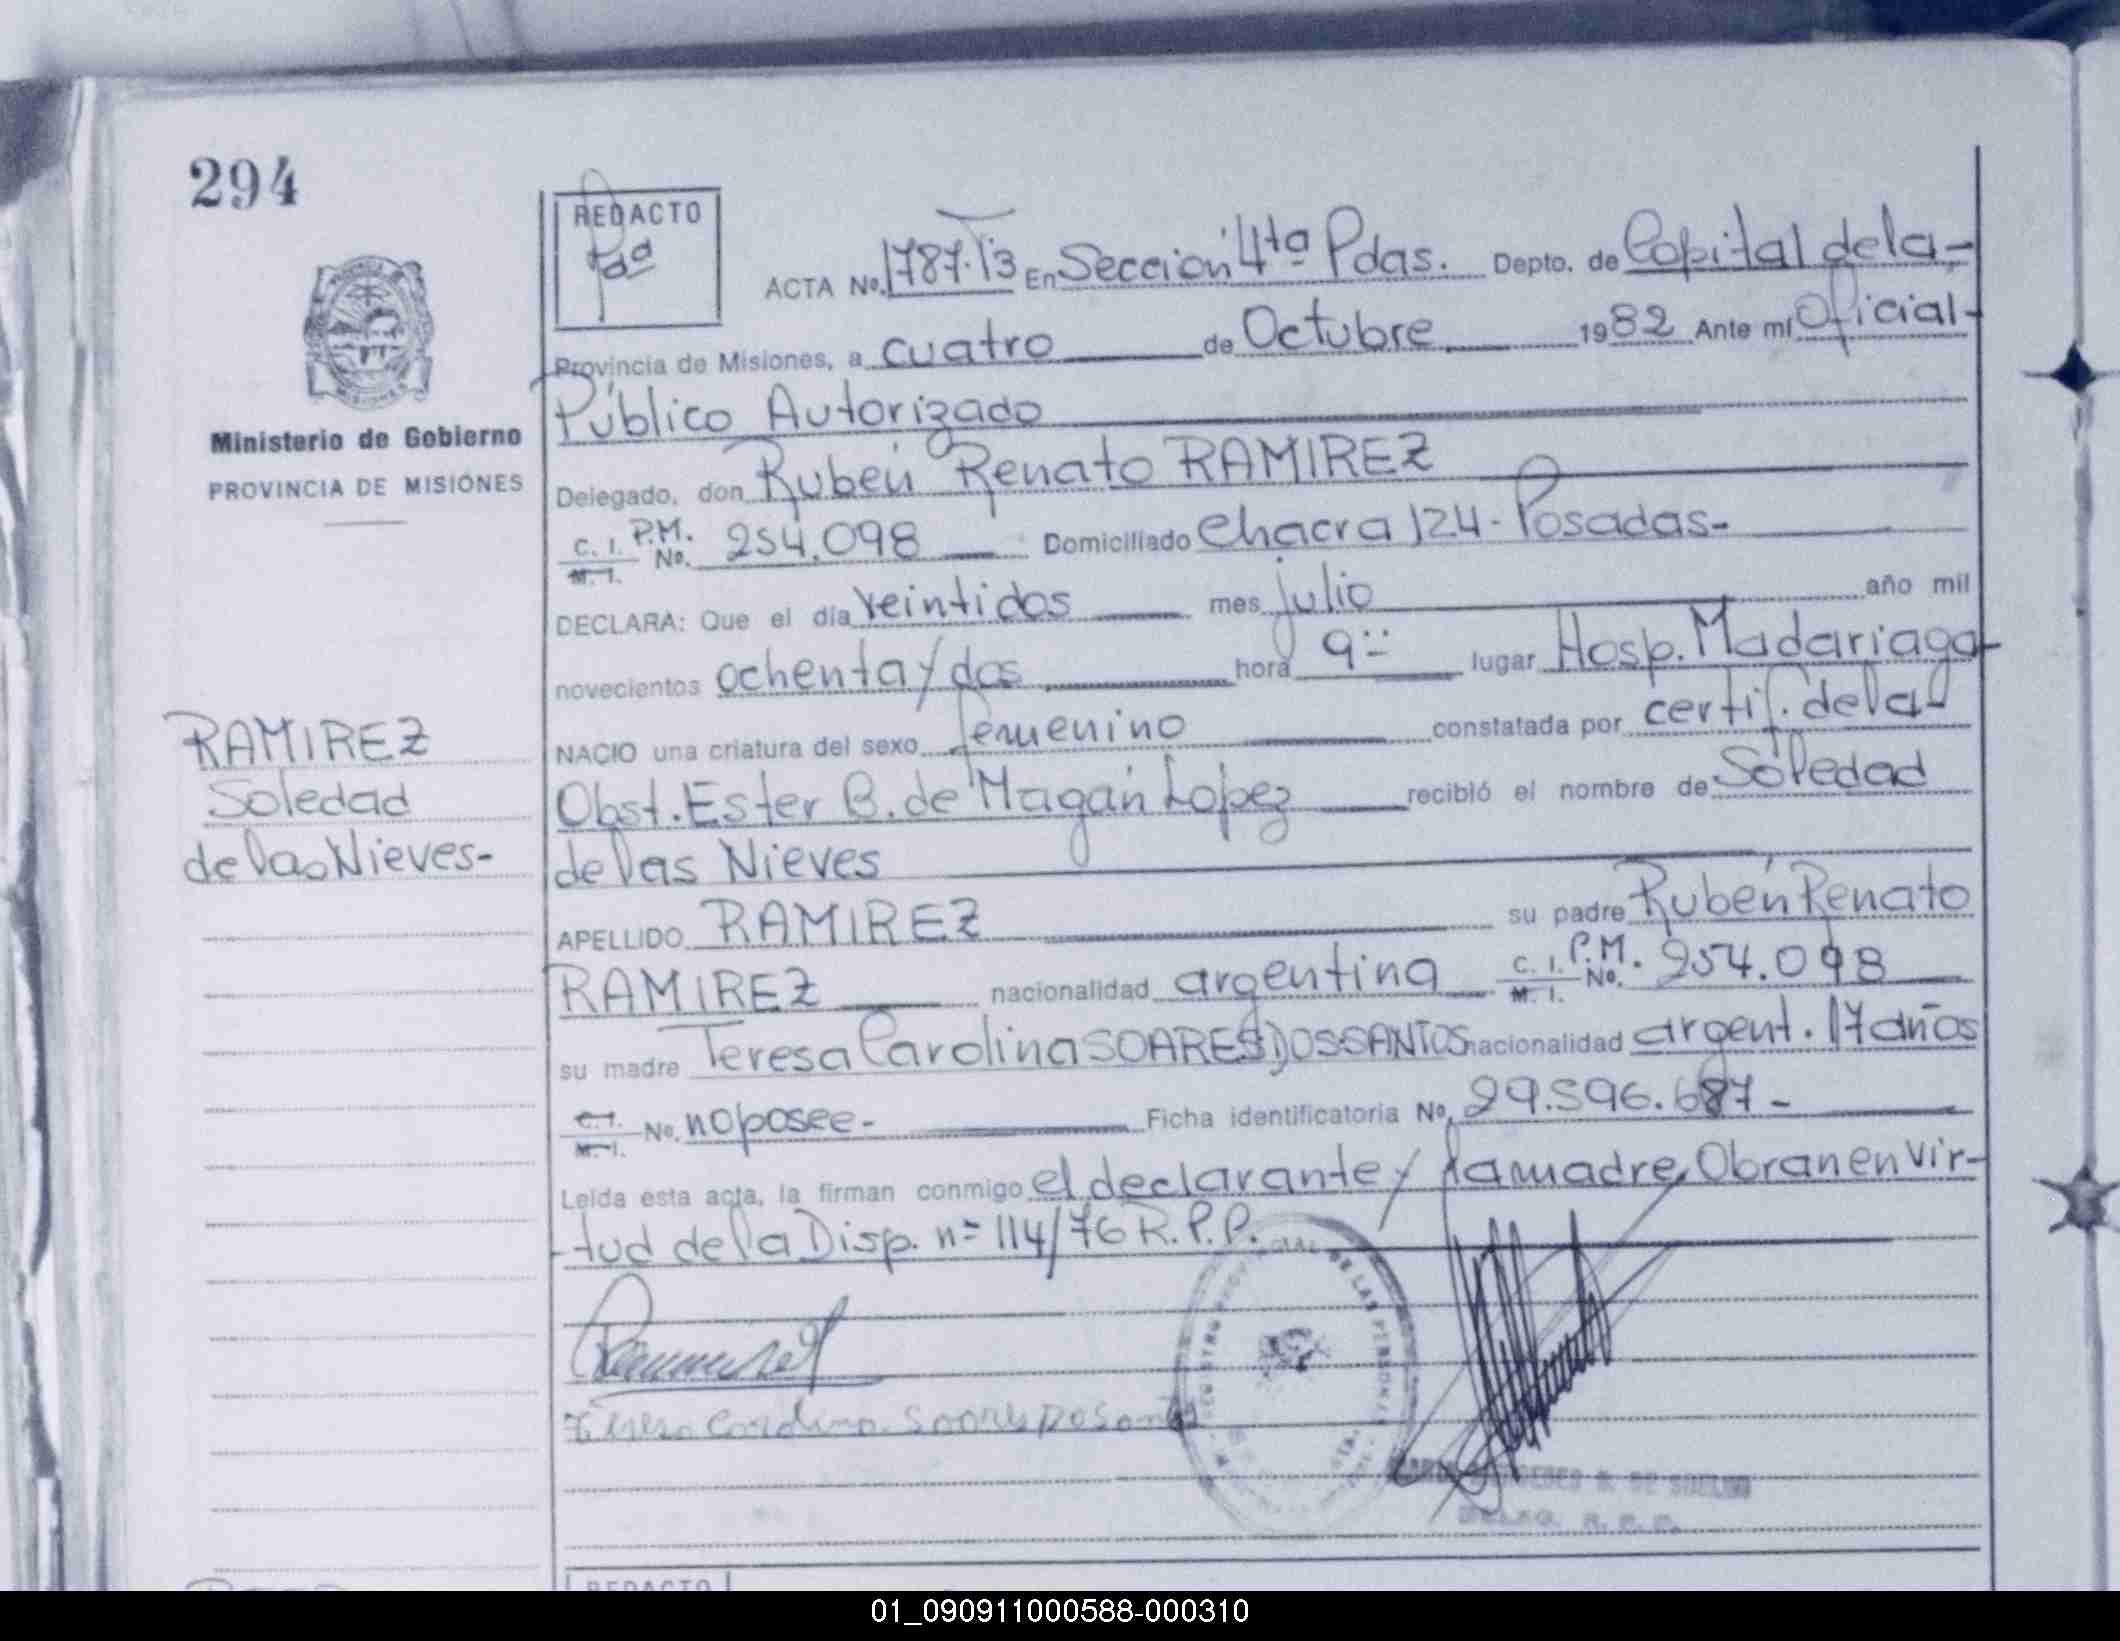 294
REDACTO
ACTA No. 1787. T3 En Sección 4ta Pdas. Depto. de Capital de la-
Provincia de Misiones, a cuatro de Octubre 1982 Ante mí Oficial-
Público Autorizado
Ministerio de Gobierno
PROVINCIA DE MISIONES
Delegado, don Rubén Renato RAMIREZ
C. I. P.M.
M. I. No. 254.098 Domiciliado Chacra 124 - Posadas-
DECLARA: Que el día veintidos mes julio año mil
novecientos ochenta y dos hora 9:: lugar Hosp. Madariaga-
NACIO una criatura del sexo femenino constatada por certif. de la
Obst. Ester B. de Magán Lopez recibió el nombre de Soledad
de las Nieves
RAMIREZ
Soledad
de las Nieves-
APELLIDO RAMIREZ su padre Rubén Renato
RAMIREZ nacionalidad argentina C. I. P.M. M. I. No. 254.098
su madre Teresa Carolina SOARES DOS SANTOS nacionalidad argent. 17 años
C. I.
M. I. No. no posee- Ficha identificatoria No. 29.596.687-
Leída esta acta, la firman conmigo el declarante y la madre, Obran en vir-
tud de la Disp. nº 114/76 R.P.P.
DE LAS PERSONAS
DE
DELEG. R. P. P.
REDACTO
01_090911000588-000310